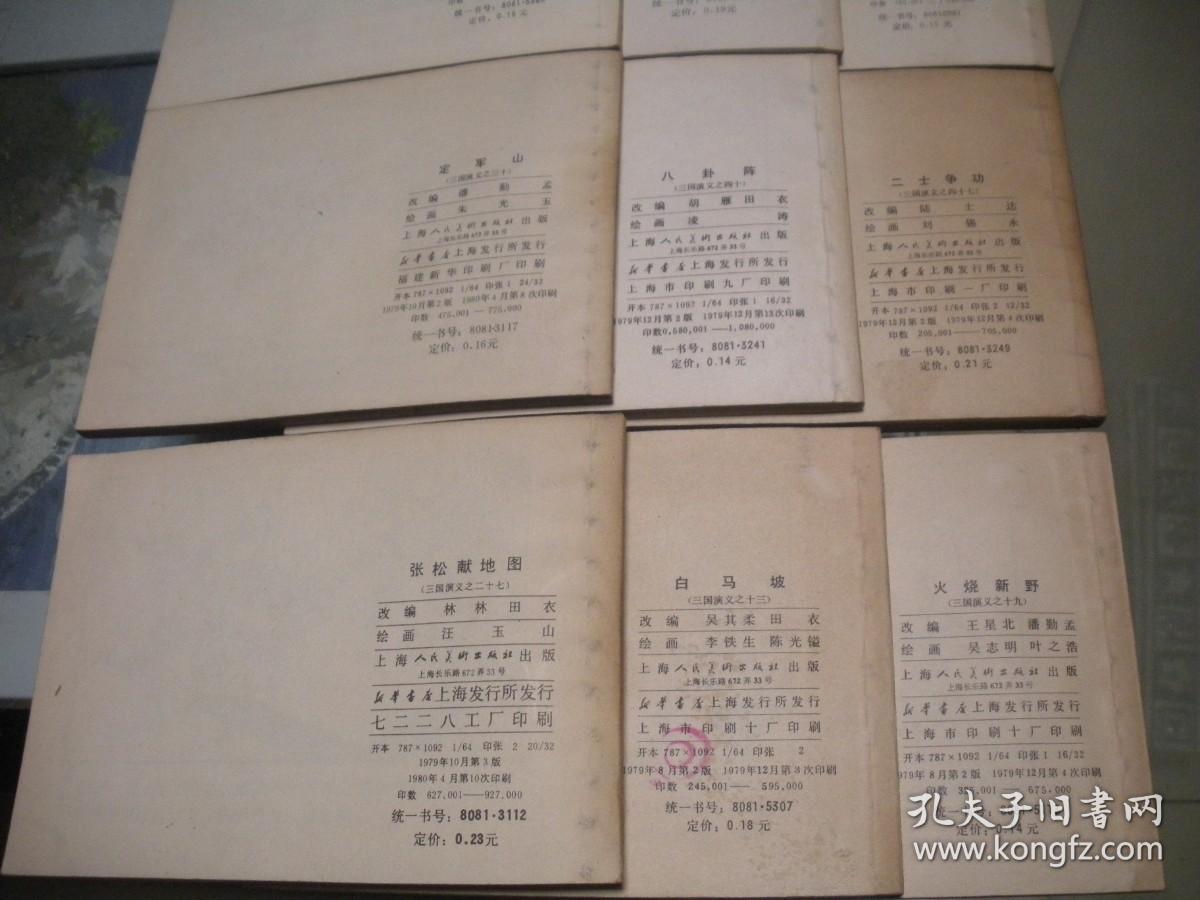 印数
统一书号：8081·
定价：0.18元
统一书号：
定价：0.19元
统一书号：
定价：0.15元
定军山
（三国演义之三十）
改编 潘勤孟
绘画 朱光玉
上海人民美术出版社出版
上海长乐路672弄33号
新华书店上海发行所发行
福建新华印刷厂印刷
开本 787×1092 1/64 印张 1 24/32
1979年10月第2版 1980年4月第8次印刷
印数 475,001—775,000
统一书号：8081·3117
定价：0.16元
八卦阵
（三国演义之四十）
改编 胡雁田衣
绘画 凌涛
上海人民美术出版社出版
上海长乐路672弄33号
新华书店上海发行所发行
上海市印刷九厂印刷
开本 787×1092 1/64 印张 1 16/32
1979年12月第2版 1979年12月第13次印刷
印数0,580,001—1,080,000
统一书号：8081·3241
定价：0.14元
二士争功
（三国演义之四十七）
改编 陆士达
绘画 刘锡永
上海人民美术出版社出版
上海长乐路672弄33号
新华书店上海发行所发行
上海市印刷一厂印刷
开本 787×1092 1/64 印张 2 12/32
1979年12月第2版 1979年12月第4次印刷
印数 205,001—705,000
统一书号：8081·3249
定价：0.21元
张松献地图
（三国演义之二十七）
改编 林林田衣
绘画 汪玉山
上海人民美术出版社出版
上海长乐路672弄33号
新华书店上海发行所发行
七二二八工厂印刷
开本 787×1092 1/64 印张 2 20/32
1979年10月第3版
1980年4月第10次印刷
印数 627,001—927,000
统一书号：8081·3112
定价：0.23元
白马坡
（三国演义之十三）
改编 吴其柔田衣
绘画 李铁生 陈光镒
上海人民美术出版社出版
上海长乐路672弄33号
新华书店上海发行所发行
上海市印刷十厂印刷
开本 787×1092 1/64 印张 2
1979年8月第2版 1979年12月第3次印刷
印数 245,001—595,000
统一书号：8081·5307
定价：0.18元
火烧新野
（三国演义之十九）
改编 王星北 潘勤孟
绘画 吴志明 叶之浩
上海人民美术出版社出版
上海长乐路672弄33号
新华书店上海发行所发行
上海市印刷十厂印刷
开本 787×1092 1/64 印张 1 16/32
979年8月第2版 1979年12月第4次印刷
印数 001—675,000
定价：0.14元
孔夫子旧书网
www.kongfz.com